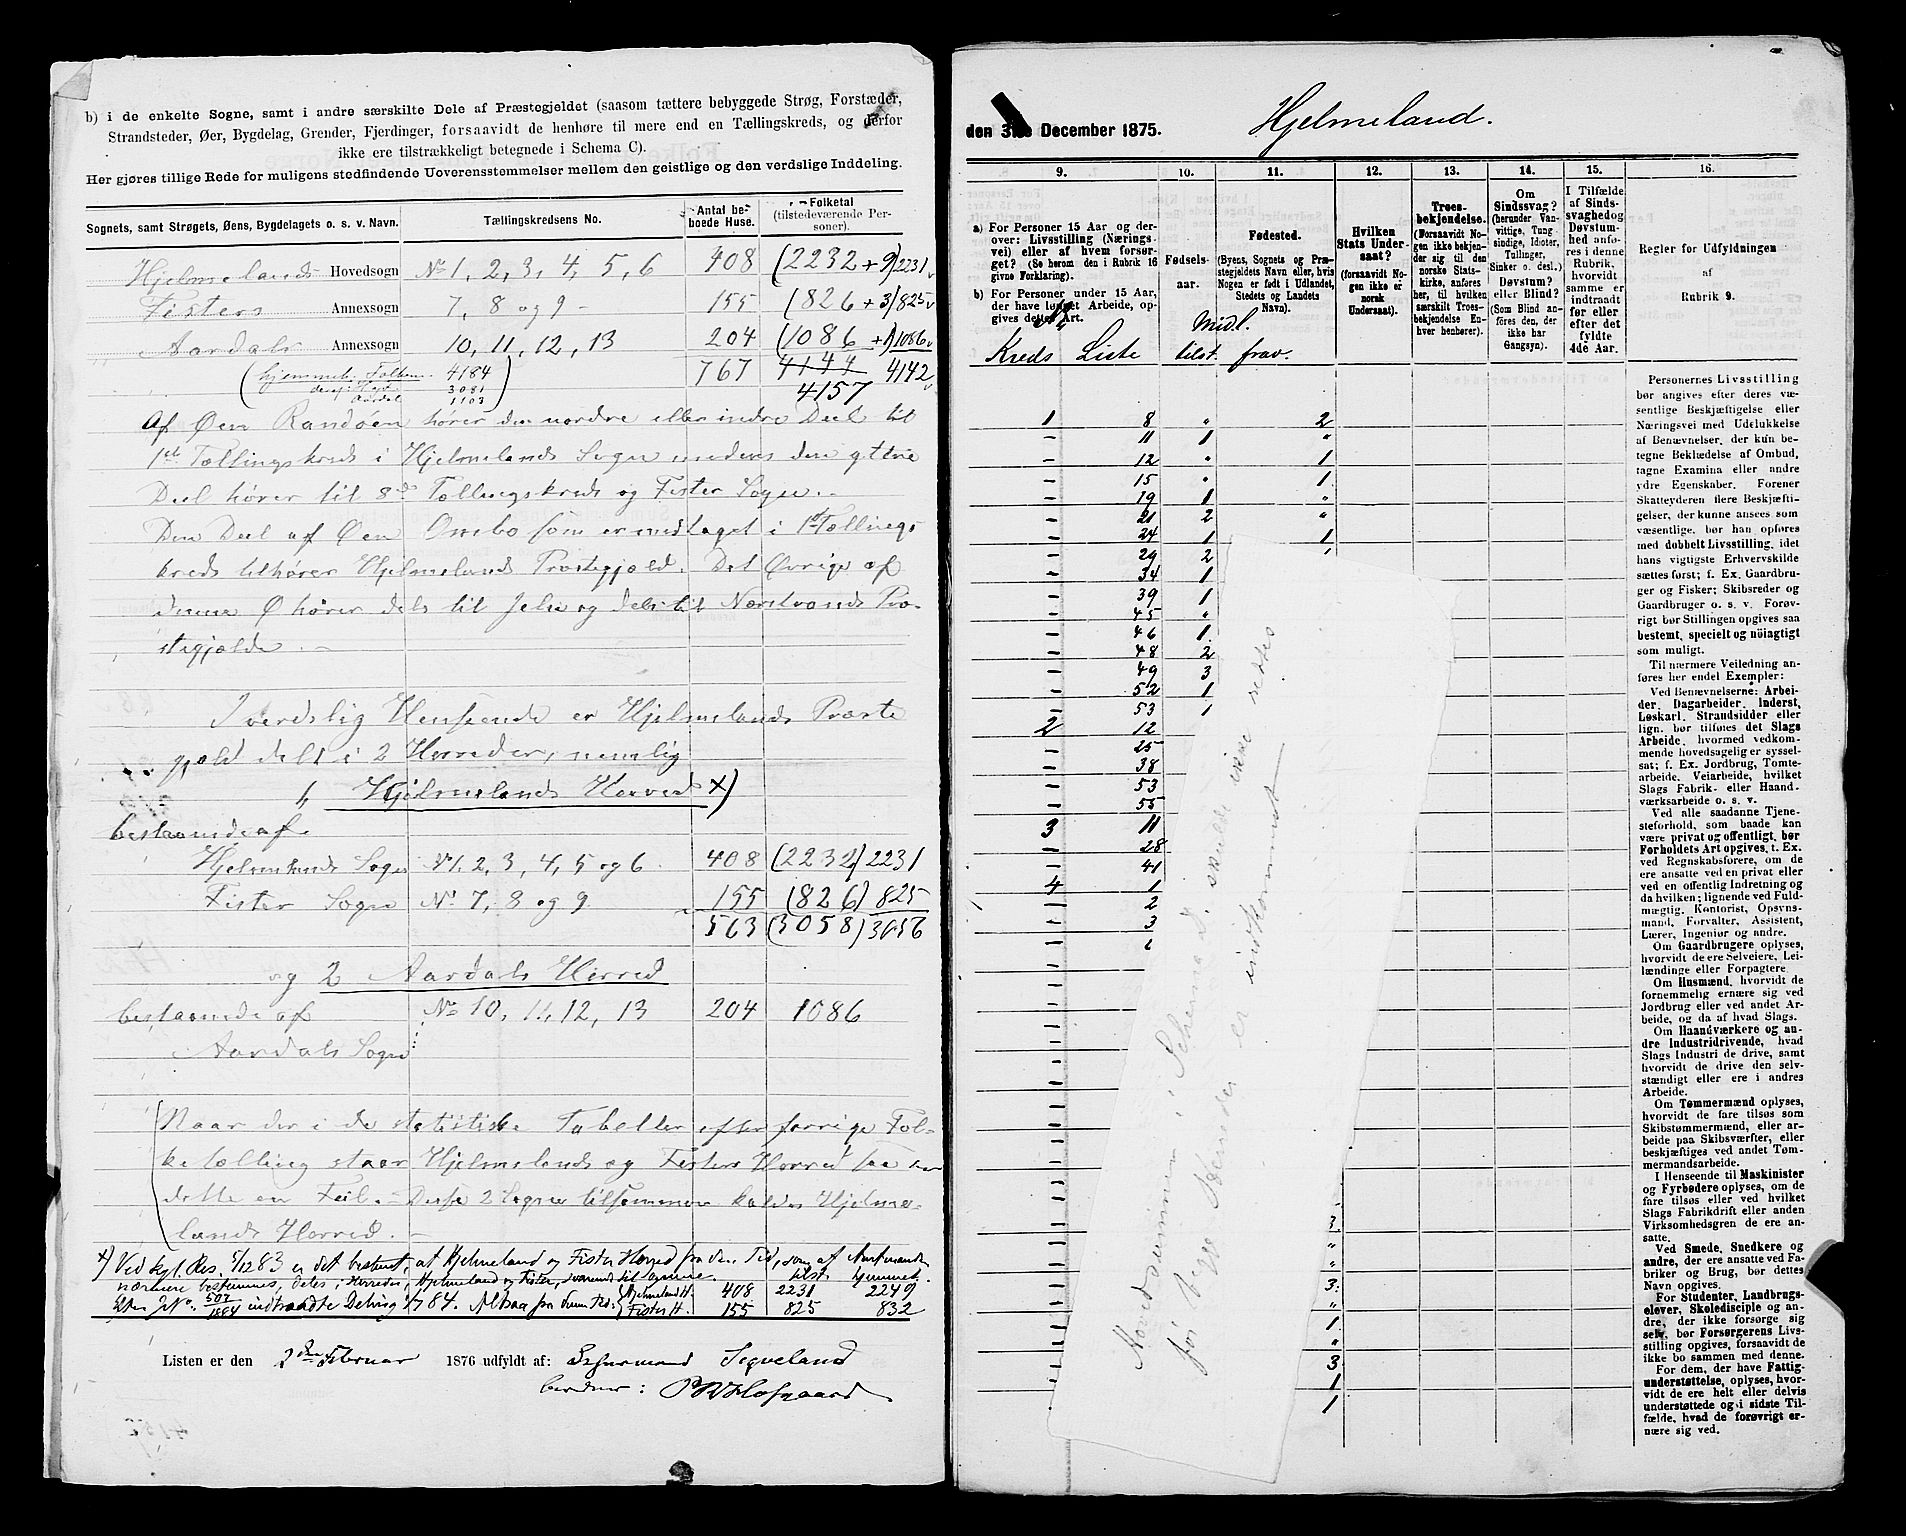 b) i de enkelte Sogne, samt i andre særskilte Dele af Præstegjeldet (saasom tættere bebyggede Strøg, Forstæder,
Strandsteder, Øer, Bygdelag, Grender, Fjerdinger, forsaavidt de henhøre til mere end en Tællingskreds, og derfor
ikke ere tilstrækkeligt betegnede i Schema C).
Her gjøres tillige Rede for muligens stedfindende Uoverensstemmelser mellem den geistlige og den verdslige Inddeling.
Sognets, samt Strøgets, Øens, Bygdelagets o. s. v. Navn. Tællingskredsens No. Antal beboede Huse. Folketal (tilstedeværende Personer).
Hjelmelands Hovedsogn No 1, 2, 3, 4, 5, 6 408 (2232 + 9) 2231
Fisters Annexsogn 7, 8 og 9 155 (826 + 3) 825
Aardals Annexsogn 10, 11, 12, 13 204 (1086 + 1) 1086
(hjemmeh. Folkem. 4184 767 4144 4142
3081
Aardal 1103) 4157
Af Øen Randøen hører den nordre eller indre Deel til
1ste Tællingskreds i Hjelmelands Sogn medens den yttre
Deel hører til 8de Tællingskreds og Fister Sogn.
Den Deel af Øen Ombo som er medtaget i 1ste Tællings
kreds tilhører Hjelmelands Præstegjæld. Det Øvrige af
denne Ø hører dels til Jelse og dels til Nærstrands Præ-
stegjælde.
I verdslig Henseende er Hjelmelands Præste
gjæld delt i 2 Herreder, nemlig
1, Hjelmelands Herred x)
bestaaende af
Hjelmelands Sogn No 1, 2, 3, 4, 5 og 6 408 (2232) 2231
Fister Sogn No 7, 8 og 9 155 (826) 825
563 (3058) 3056
og 2 Aardals Herred
bestaaende af No 10, 11, 12, 13 204 1086
Aardals Sogn
(Naar der i de statistiske Tabeller efter forrige Fol-
ketælling staar Hjelmelands og Fisters Herred saa er
dette en Feil. Disse 2 Sogne tilsammen kaldes Hjelme-
lands Herred.
x) Ved kgl. Res. 5/12 83 er det bestemt, at Hjelmeland og Fister Herred fra den Tid, som af Amtmanden
nærmere bestemmes, deles i Herreder, Hjelmeland og Fister, svarende til sognene. tilst. hjemmeh.
J.No. 507/1884 indtraadte Deling 1/7 84. Altsaa fra denne Tid: Hjelmeland H. 408 2231 2249
Fister H. 155 825 832
Listen er den 2den Februar 1876 udfyldt af: Lensmand Sigveland
den 31te December 1875. Hjelmeland.
9. 10. 11. 12. 13. 14. 15. 16.
a) For Personer 15 Aar og derover: Livsstilling (Næringsvei) eller af hvem forsørget? (Se herom den i Rubrik 16 givne Forklaring).
b) For Personer under 15 Aar, der have lønnet Arbeide, opgives dettes Art.
Fødselsaar.
Fødested. (Byens, Sognets og Præstegjeldets Navn eller, hvis Nogen er født i Udlandet, Stedets og Landets Navn).
Hvilken Stats Undersaat? (forsaavidt Nogen ikke er norsk Undersaat).
Troesbekjendelse. (Forsaavidt Nogen ikke bekjender sig til den norske Statskirke, anføres her, til hvilken særskilt Troesbekjendelse Enhver henhører).
Om Sindssvag? (herunder Vanvittige, Tungsindige, Idioter, Tullinger, Sinker o. desl.). Døvstum? eller Blind? (Som Blind anføres den, der ikke har Gangsyn).
I Tilfælde af Sindssvaghed og Døvstumhed anføres i denne Rubrik, hvorvidt samme er indtraadt før eller efter det fyldte 4de Aar.
Regler for Udfyldningen
af
Rubrik 9.
Midl.
Kreds Liste tilst. frav.
1 8 " 2
– 11 1 "
– 12 " 1
– 15 " 1
– 19 1 "
– 21 2 "
– 24 1 1
– 29 2
– 34 1
– 39 1
– 45 "
– 46 1
– 48 2
– 49 3
– 52 1
– 53 1
2 12
– 25
– 38
– 53
– 55
3 11
– 28
– 41
4 1
– 2
– 3
3
"
"
3
"
1
"
3
1
1
Hovedsummen i Schema D. skulde ikke rettes
før begge Sedler er indkommet
Personernes Livsstilling
bør angives efter deres væ-
sentlige Beskjæftigelse eller
Næringsvei med Udelukkelse
af Benævnelser, der kun be-
tegne Beklædelse af Ombud,
tagne Examina eller andre
ydre Egenskaber. Forener
Skatteyderen flere Beskjæfti-
gelser, der kunne ansees som
væsentlige, bør han opføres
med dobbelt Livsstilling, idet
hans vigtigste Erhvervskilde
sættes først; f. Ex. Gaardbru-
ger og Fisker; Skibsreder og
Gaardbruger o. s. v. Forøv-
rigt bør Stillingen opgives saa
bestemt, specielt og nöiagtigt
som muligt.
Til nærmere Veiledning an-
føres her endel Exempler:
Ved Benævnelserne: Arbei-
der, Dagarbeider, Inderst,
Løskarl, Strandsidder eller
lign. bør tilføies det Slags
Arbeide, hvormed vedkom-
mende hovedsagelig er syssel-
sat; f. Ex. Jordbrug, Tomte-
arbeide, Veiarbeide, hvilket
Slags Fabrik- eller Haand-
værksarbeide o. s. v.
Ved alle saadanne Tjene-
steforhold, som baade kan
være privat og offentligt, bør
Forholdets Art opgives, t. Ex.
ved Regnskabsførere, om de
ere ansatte ved en privat eller
ved en offentlig Indretning og
da hvilken; lignende ved Fuld-
mægtig, Kontorist, Opsyns-
mand, Forvalter, Assistent,
Lærer, Ingeniør og andre.
Om Gaardbrugere oplyses,
hvorvidt de ere Selveiere, Lei-
lændinge eller Forpagtere.
Om Husmænd, hvorvidt de
fornemmelig ernære sig ved
Jordbrug eller ved andet Ar-
beide, og da af hvad Slags.
Om Haandværkere og an-
dre Industridrivende, hvad
Slags Industri de drive, samt
hvorvidt de drive den selv-
stændigt eller ere i andres
Arbeide.
Om Tømmermænd oplyses,
hvorvidt de fare tilsøs som
Skibstømmermænd, eller ar-
beide paa Skibsværfter, eller
beskjæftiges ved andet Töm-
mermandsarbeide.
I Henseende til Maskinister
og Fyrbødere oplyses, om de
fare tilsøs eller ved hvilket
Slags Fabrikdrift eller anden
Virksomhedsgren de ere an-
satte.
Ved Smede, Snedkere og
andre, der ere ansatte ved Fa-
briker og Brug, bør dettes
Navn opgives.
For Studenter, Landbrugs-
elever, Skoledisciple og an-
dre, der ikke forsørge sig
selv, bør Forsørgerens Livs-
stilling opgives, forsaavidt de
ikke bo sammen med denne.
For dem, der have Fattig-
understøttelse, oplyses, hvor-
vidt de ere helt eller delvis
understøttede og i sidste Til-
fælde, hvad de forøvrigt er-
nære sig ved.